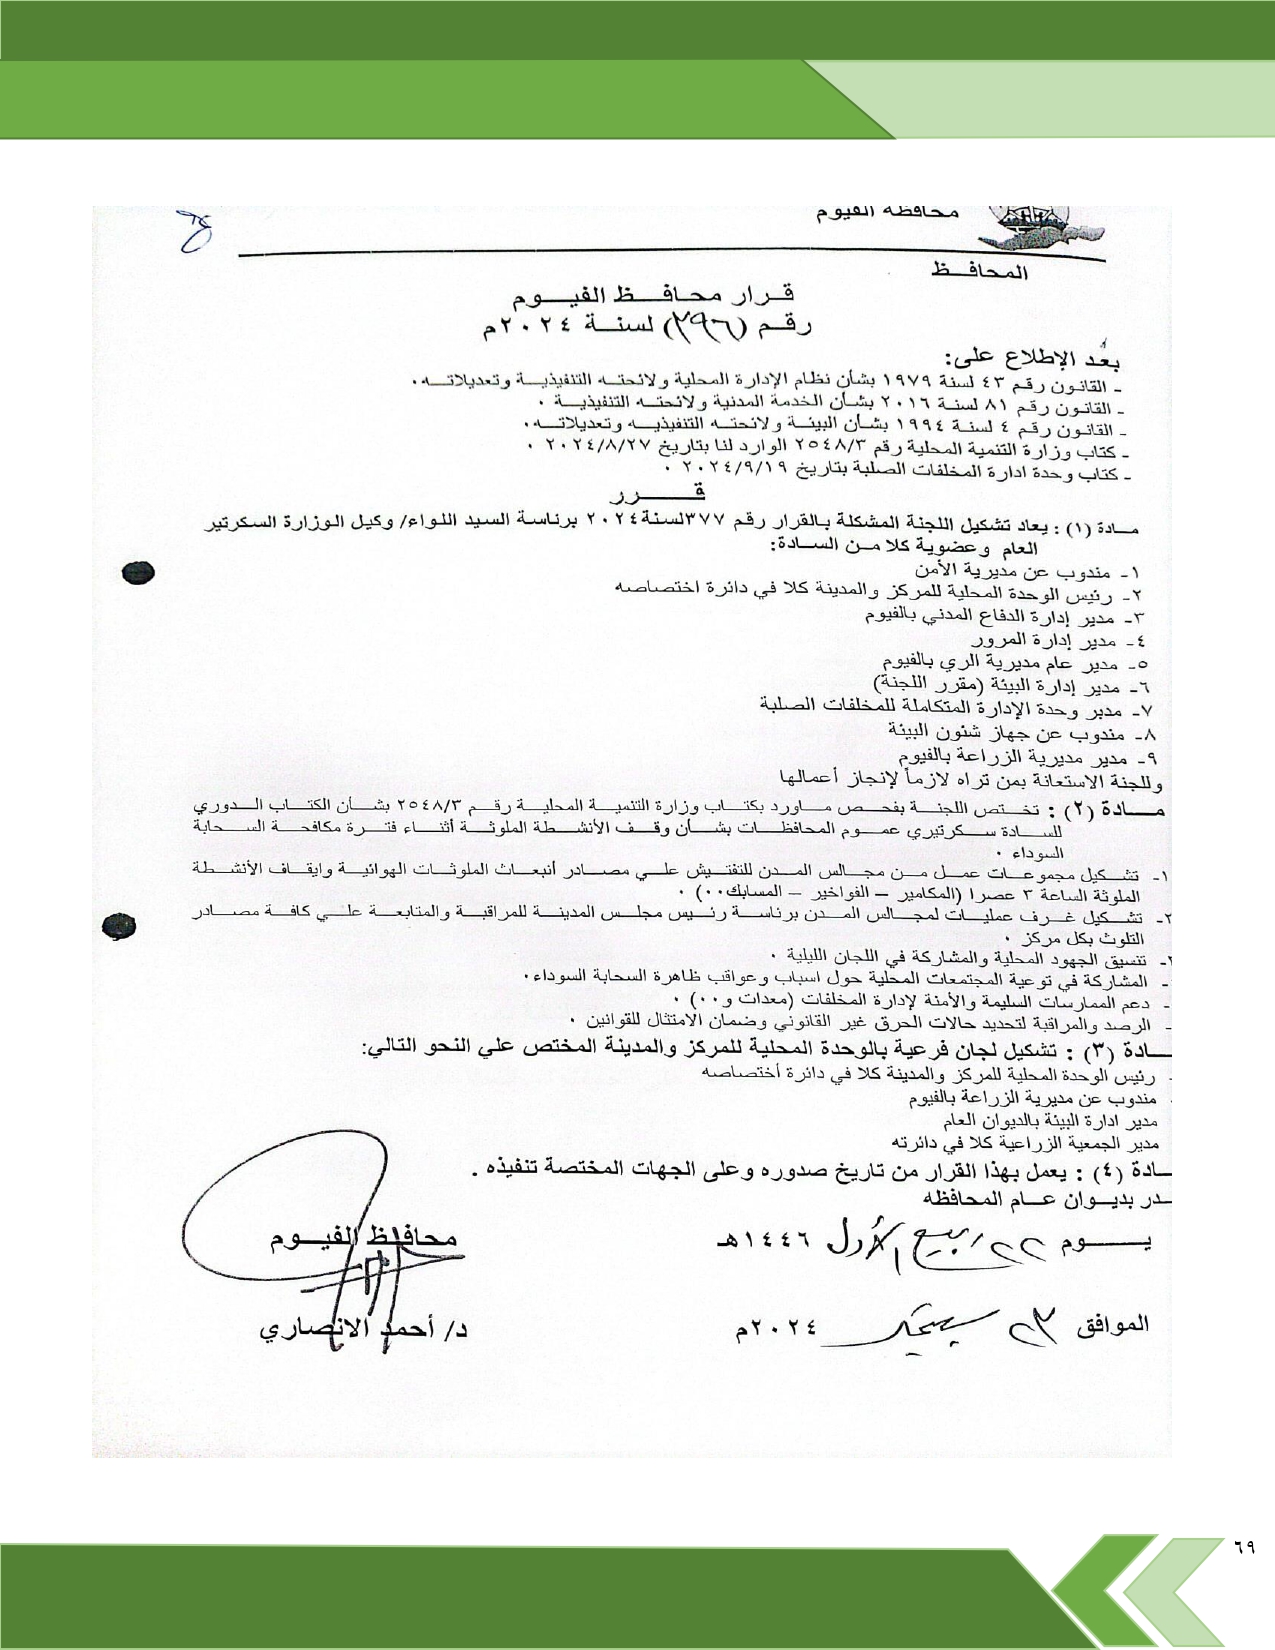 محافظة الفيوم
المحافــظ
قــرار محافــــظ الفيــــوم
رقــم (٣٩٦) لسنــة ٢٠٢٤م
بعد الإطلاع على:
ـ القانون رقم ٤٣ لسنة ١٩٧٩ بشأن نظام الإدارة المحلية ولائحته التنفيذية وتعديلاته.
ـ القانون رقم ٨١ لسنة ٢٠١٦ بشأن الخدمة المدنية ولائحته التنفيذية .
ـ القانون رقم ٤ لسنة ١٩٩٤ بشأن البيئة ولائحته التنفيذيه وتعديلاته.
ـ كتاب وزارة التنمية المحلية رقم ٢٥٤٨/٣ الوارد لنا بتاريخ ٢٠٢٤/٨/٢٧ .
ـ كتاب وحدة ادارة المخلفات الصلبة بتاريخ ٢٠٢٤/٩/١٩ .
قــــرر
مــادة (١) : يعاد تشكيل اللجنة المشكلة بالقرار رقم ٣٧٧لسنة٢٠٢٤ برئاسة السيد اللواء/ وكيل الوزارة السكرتير
العام وعضوية كلا من السادة:
١ـ مندوب عن مديرية الأمن
٢ـ رئيس الوحدة المحلية للمركز والمدينة كلا في دائرة اختصاصه
٣ـ مدير إدارة الدفاع المدني بالفيوم
٤ـ مدير إدارة المرور
٥ـ مدير عام مديرية الري بالفيوم
٦ـ مدير إدارة البيئة (مقرر اللجنة)
٧ـ مدير وحدة الإدارة المتكاملة للمخلفات الصلبة
٨ـ مندوب عن جهاز شئون البيئة
٩ـ مدير مديرية الزراعة بالفيوم
وللجنة الاستعانة بمن تراه لازماً لإنجاز أعمالها
مــادة (٢) : تختص اللجنة بفحص ماورد بكتاب وزارة التنمية المحلية رقم ٢٥٤٨/٣ بشأن الكتاب الدوري
للسادة سكرتيري عموم المحافظات بشأن وقف الأنشطة الملوثة أثناء فترة مكافحة السحابة
السوداء .
١ـ تشكيل مجموعات عمل من مجالس المدن للتفتيش علي مصادر أنبعاث الملوثات الهوائية وايقاف الأنشطة
الملوثة الساعة ٣ عصرا (المكامير – الفواخير – المسابك٠٠) .
٢ـ تشكيل غرف عمليات لمجالس المدن برئاسة رئيس مجلس المدينة للمراقبة والمتابعة علي كافة مصادر
التلوث بكل مركز .
ـ تنسيق الجهود المحلية والمشاركة في اللجان الليلية .
ـ المشاركة في توعية المجتمعات المحلية حول اسباب وعواقب ظاهرة السحابة السوداء.
ـ دعم الممارسات السليمة والأمنة لإدارة المخلفات (معدات و٠٠) .
ـ الرصد والمراقبة لتحديد حالات الحرق غير القانوني وضمان الامتثال للقوانين .
ــادة (٣) : تشكيل لجان فرعية بالوحدة المحلية للمركز والمدينة المختص علي النحو التالي:
رئيس الوحدة المحلية للمركز والمدينة كلا في دائرة أختصاصه
مندوب عن مديرية الزراعة بالفيوم
مدير ادارة البيئة بالديوان العام
مدير الجمعية الزراعية كلا في دائرته
ــادة (٤) : يعمل بهذا القرار من تاريخ صدوره وعلى الجهات المختصة تنفيذه .
ــدر بديــوان عــام المحافظه
يـــــوم ٢٢ ربيع الأول ١٤٤٦هـ
محافــظ الفيــوم
الموافق ٢٣ سبتمبر ٢٠٢٤م
د/ أحمد الانصاري
٦٩